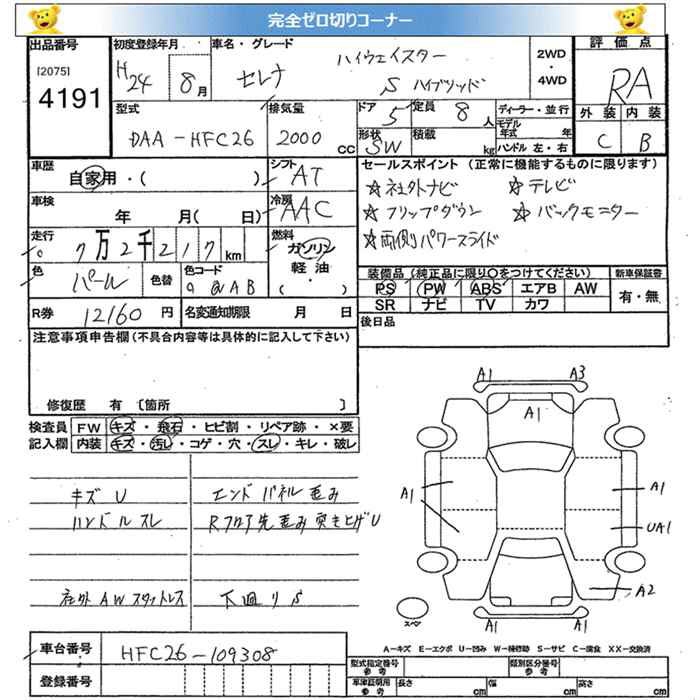 完全ゼロ切りコーナー
出品番号 初度登録年月 車名・グレード 評価点
[2075] 4191
H24 8月 セレナ ハイウェイスター S ハイブリッド 2WD・4WD RA
型式 排気量 ドア 5 定員 8人 ディーラー・並行 外装 内装
DAA-HFC26 2000 CC 形状 SW 積載 kg モデル年式 年 ハンドル 左・右 C B
車歴 自家用・( ) シフト AT セールスポイント (正常に機能するものに限ります)
車検 年 月( 日) 冷房 AAC ☆社外ナビ ☆テレビ
☆フリップダウン ☆バックモニター
走行 7万2千217km 燃料 ガソリン 軽油 ・( ・ ) ☆両側パワースライド
色 パール 色替 色コード QAB 装備品 (純正品に限り○をつけてください) 新車保証書
PS PW ABS エアB AW 有・無
SR ナビ TV カワ
R券 12160 円 名変通知期限 月 日 後日品
注意事項申告欄 (不具合内容等は具体的に記入して下さい)
修復歴 有 〔箇所 〕
検査員 FW キズ・飛石・ヒビ割・リペア跡・×要
記入欄 内装 キズ・汚レ・コゲ・穴・スレ・キレ・破レ
キズU エンドパネル歪み
ハンドルスレ Rフロア先歪み突き上げU
社外AWスタットレス 下廻りS
A1 A3
A1
A1 A1
UA1
A2
A1
A1
スペア
A-キズ E-エクボ U-凹み W-補修跡 S-サビ C-腐食 XX-交換済
車台番号 HFC26-109308
登録番号
型式指定番号 参考 類別区分番号 参考
車庫証明用 参考 長さ cm 幅 cm 高さ cm